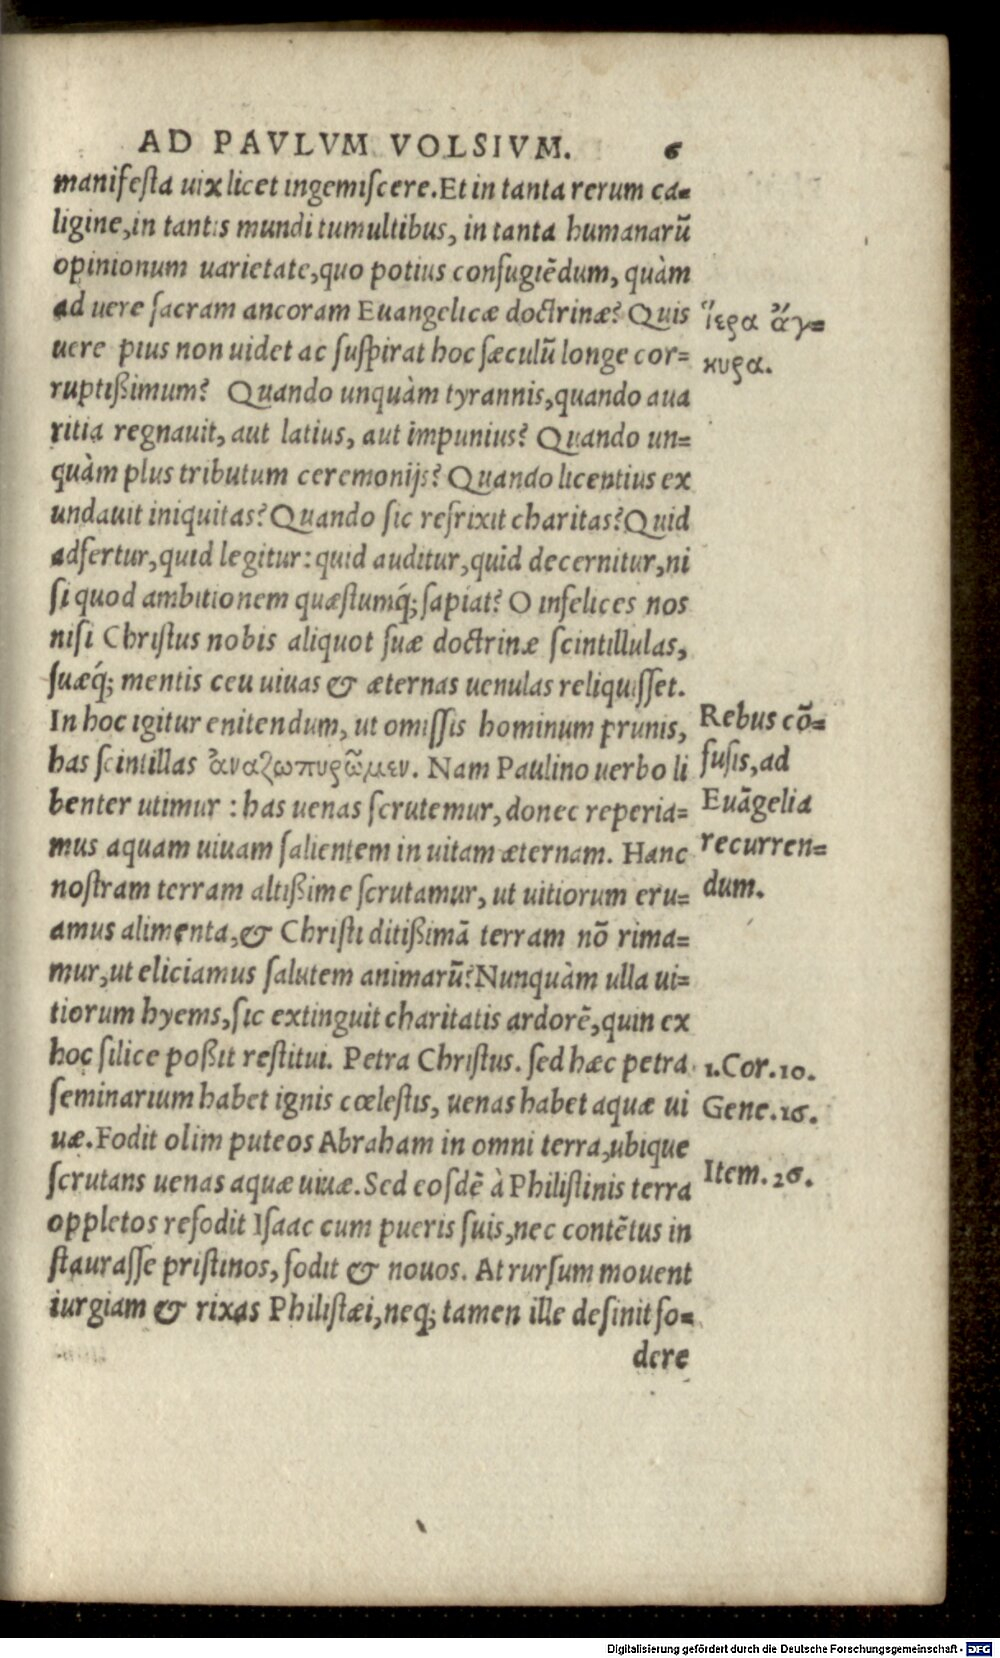 AD PAVLVM VOLSIVM. 6
manifesta uix licet ingemiscere. Et in tanta rerum ca=
ligine, in tantis mundi tumultibus, in tanta humanarũ
opinionum uarietate, quo potius confugiẽdum, quàm
ad uere sacram ancoram Euangelicæ doctrinæ? Quis
uere pius non uidet ac suspirat hoc sæculũ longe cor=
ruptißimum? Quando unquàm tyrannis, quando aua
ritia regnauit, aut latius, aut impunius? Quando un=
quàm plus tributum ceremonijs? Quando licentius ex
undauit iniquitas? Quando sic refrixit charitas? Quid
adfertur, quid legitur: quid auditur, quid decernitur, ni
si quod ambitionem quæstumq́; sapiat? O infelices nos
nisi Christus nobis aliquot suæ doctrinæ scintillulas,
suæq́; mentis ceu uiuas & æternas uenulas reliquisset.
In hoc igitur enitendum, ut omissis hominum prunis,
has scintillas ἀναζωπυρῶμεν. Nam Paulino uerbo li
benter utimur: has uenas scrutemur, donec reperia=
mus aquam uiuam salientem in uitam æternam. Hanc
nostram terram altißime scrutamur, ut uitiorum eru=
amus alimenta, & Christi ditißimã terram nõ rima=
mur, ut eliciamus salutem animarũ? Nunquàm ulla ui=
tiorum hyems, sic extinguit charitatis ardorẽ, quin ex
hoc silice poßit restitui. Petra Christus. sed hæc petra
seminarium habet ignis cœlestis, uenas habet aquæ ui
uæ. Fodit olim puteos Abraham in omni terra, ubique
scrutans uenas aquæ uiuæ. Sed eosdẽ à Philistinis terra
oppletos refodit Isaac cum pueris suis, nec contẽtus in
staurasse pristinos, fodit & nouos. At rursum mouent
iurgiam & rixas Philistæi, neq; tamen ille desinit fo=
dere
ἵερα ἄγ=
κυρα.
Rebus cõ=
fusis, ad
Euãgelia
recurren=
dum.
1. Cor. 10.
Gene. 16.
Item. 26.
Digitalisierung gefördert durch die Deutsche Forschungsgemeinschaft - DFG